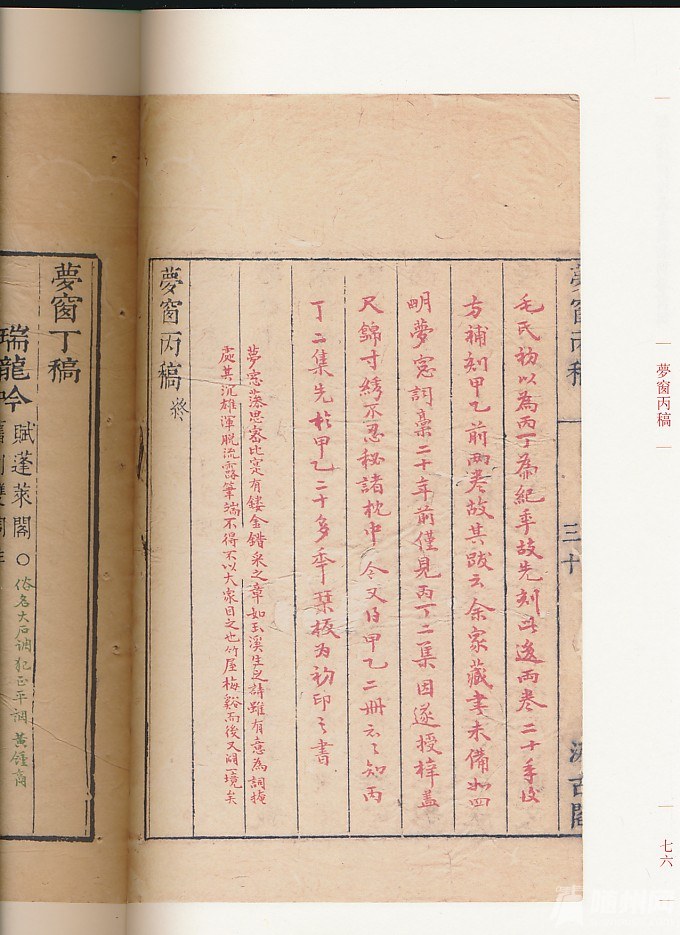 夢窗丙稿
七六
夢窗丙稿
三十
汲古閣
毛氏初以為丙丁為紀年故先刻此後兩卷二十年後
方補刻甲乙前兩卷故其跋云余家藏書未備如四
明夢窗詞稾二十年前僅見丙丁二集因遂授梓蓋
尺錦寸綉不忍秘諸枕中今又得甲乙二冊云云知丙
丁二集先於甲乙二十多年栞板为初印之書
夢窗藻思審比定有鏤金錯采之章如玉溪生之詩雖有意為詞掩
處其沉雄渾脫流露筆端不得不以大家目之也竹屋梅谿而後又闢一境矣
夢窗丙稿終
夢窗丁稿
瑞龍吟
賦蓬萊閣○俗名大石調犯正平調黃鍾商